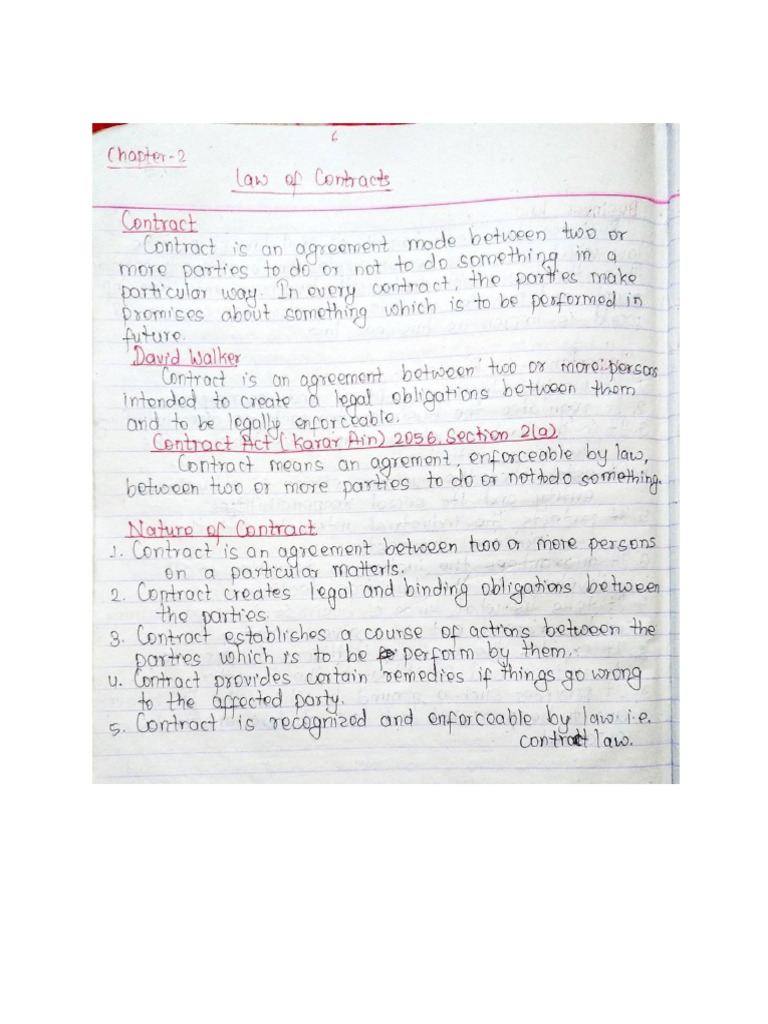 6
Chapter-2
Law of Contracts
Contract
Contract is an agreement made between two or
more parties to do or not to do something in a
particular way. In every contract, the parties make
promises about something which is to be performed in
future.
David Walker
Contract is an agreement between two or more persons
intended to create a legal obligations between them
and to be legally enforceable.
Contract Act (Karar Ain) 2056, Section 2(a)
Contract means an agrement, enforceable by law,
between two or more parties to do or not to do something.
Nature of Contract
1. Contract is an agreement between two or more persons
on a particular matterls.
2. Contract creates legal and binding obligations between
the parties.
3. Contract establishes a course of actions between the
parties which is to be perform by them.
4. Contract provides certain remedies if things go wrong
to the affected party.
5. Contract is recognized and enforceable by law i.e.
contract law.